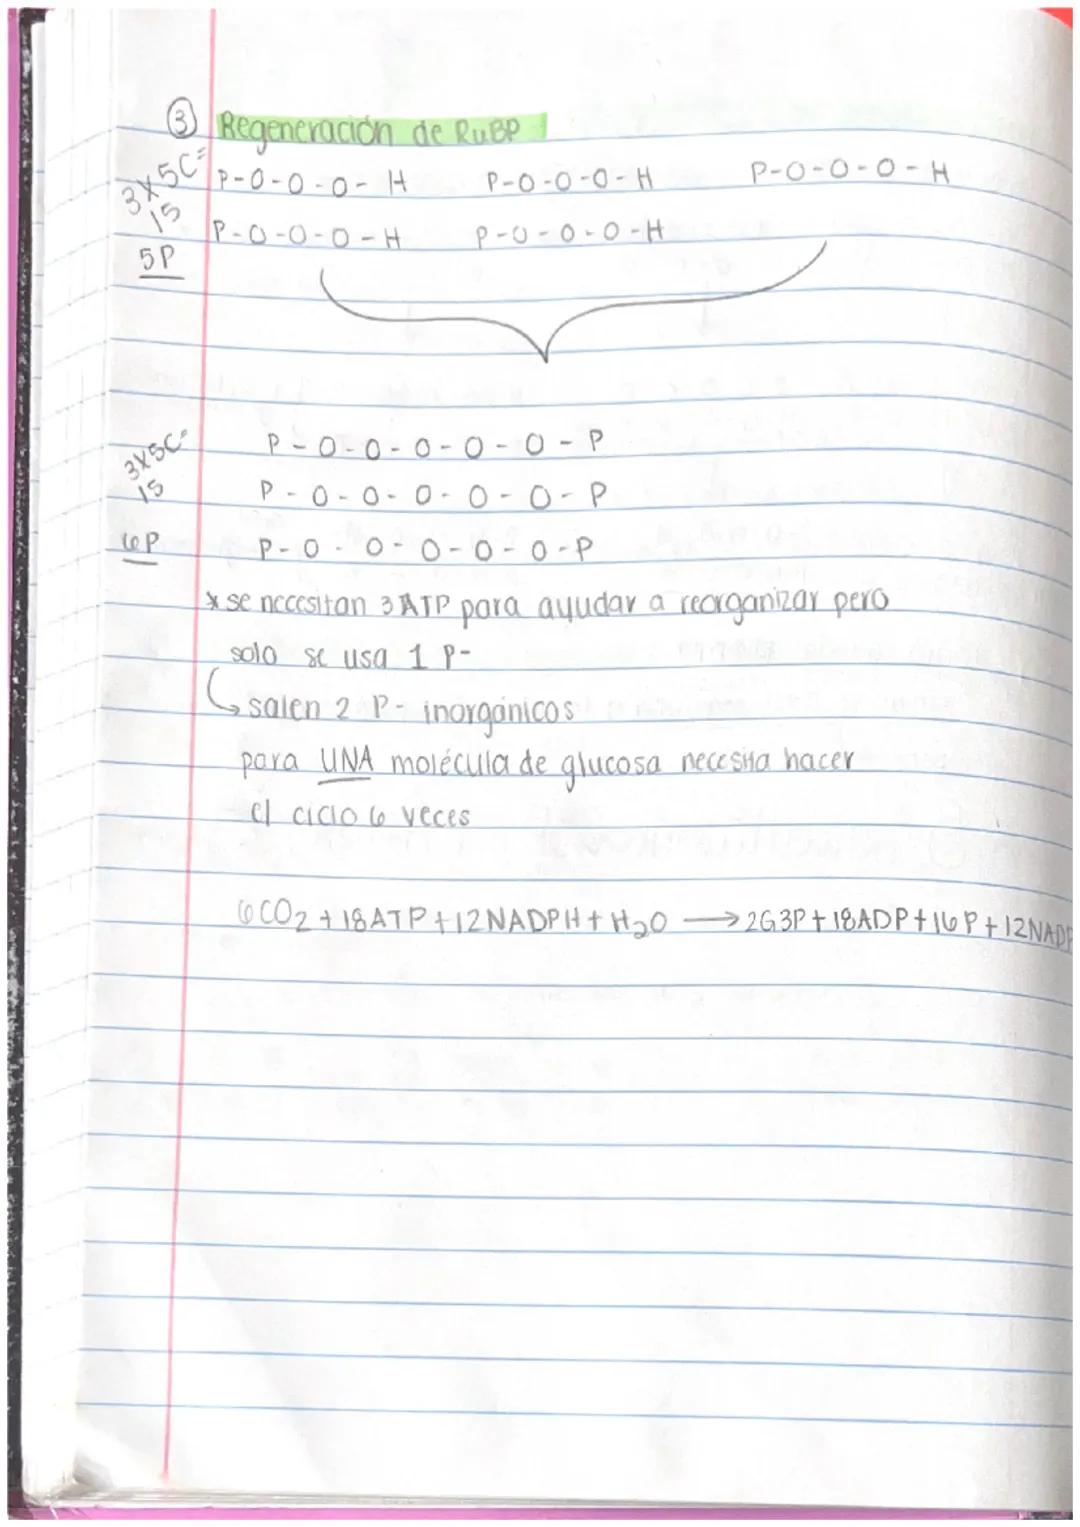 ③ Regeneración de RuBP
3x5C=
15
5P
P-O-O-O-H P-O-O-O-H P-O-O-O-H
P-O-O-O-H P-O-O-O-H
3x5C=
15
6P
P-O-O-O-O-O-P
P-O-O-O-O-O-P
P-O-O-O-O-O-P
* se necesitan 3 ATP para ayudar a reorganizar pero
solo se usa 1 P-
↳ salen 2 P- inorgánicos
para UNA molécula de glucosa necesita hacer
el ciclo 6 veces
6CO₂ + 18ATP + 12NADPH + H₂O → 2G3P + 18ADP + 16P + 12NADP